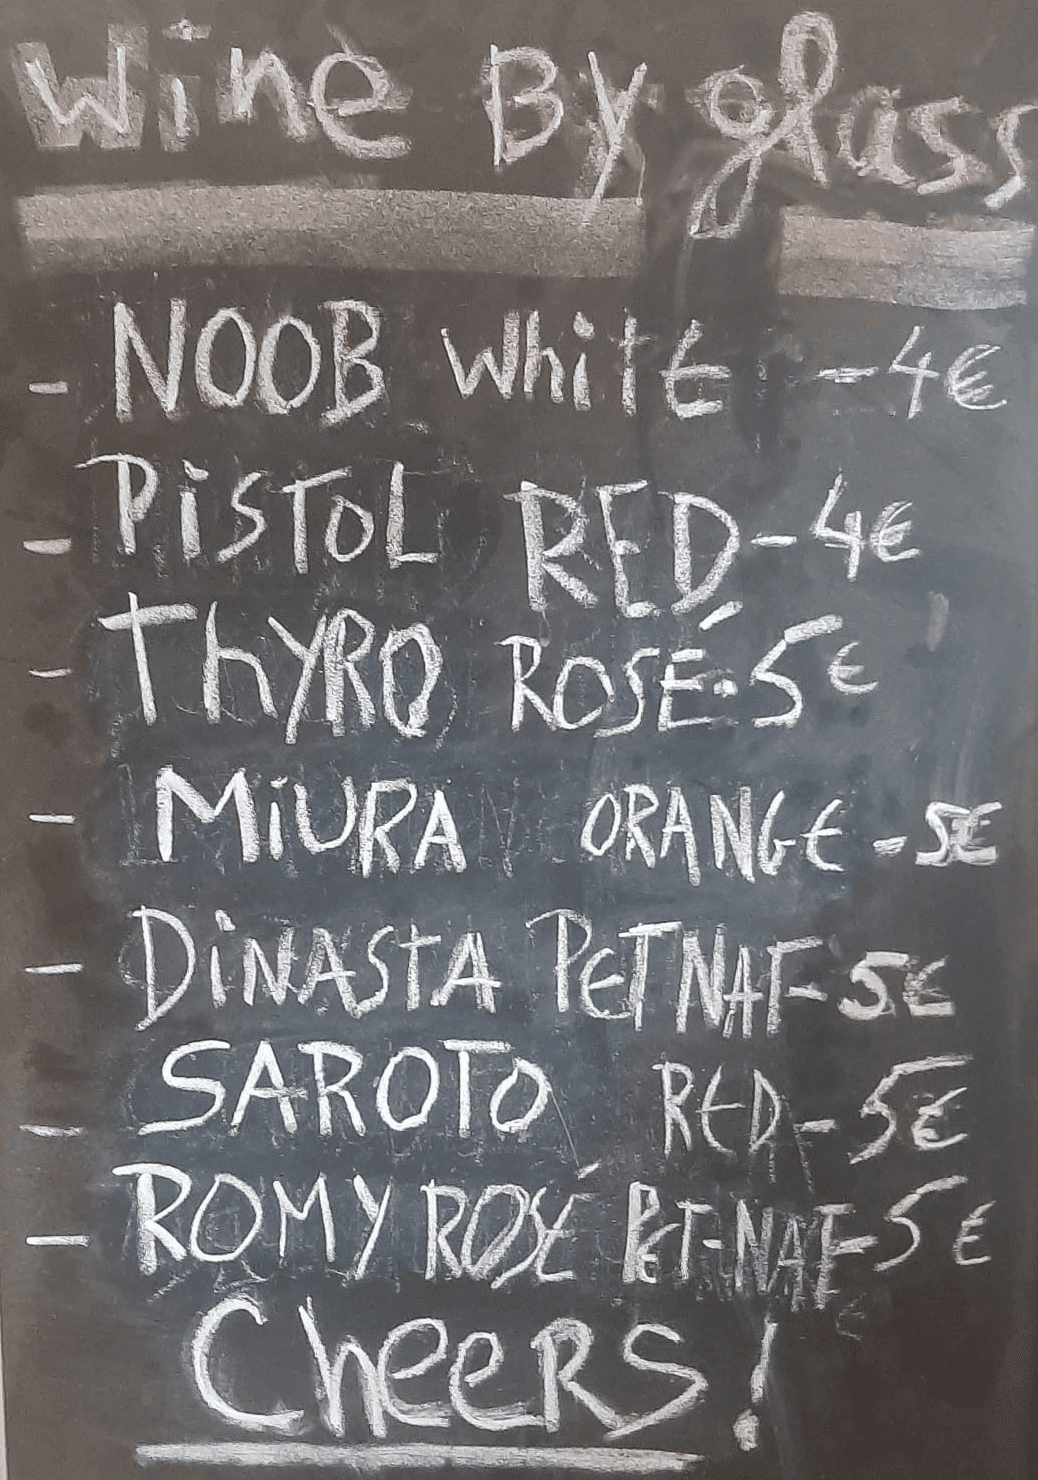 Wine By glass
- NOOB WhitE - 4€
- PiSToL RED - 4€
- ThYRO ROSÉ - 5€
- MiURA ORANGE - 5€
- DiNASTA PETNAT - 5€
- SAROTO RED - 5€
- ROMY ROSÉ PET-NAT - 5€
CheeRS!